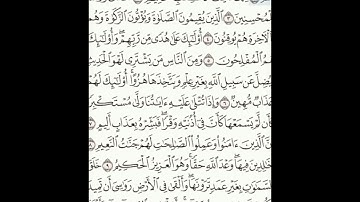 لِّلْمُحْسِنِينَ ٣ الَّذِينَ يُقِيمُونَ الصَّلَوٰةَ وَيُؤْتُونَ الزَّكَوٰةَ وَهُم
بِالْآخِرَةِ هُمْ يُوقِنُونَ ٤ أُولَٰئِكَ عَلَىٰ هُدًى مِّن رَّبِّهِمْ وَأُولَٰئِكَ
هُمُ الْمُفْلِحُونَ ٥ وَمِنَ النَّاسِ مَن يَشْتَرِي لَهْوَ الْحَدِيثِ
لِيُضِلَّ عَن سَبِيلِ اللَّهِ بِغَيْرِ عِلْمٍ وَيَتَّخِذَهَا هُزُوًا أُولَٰئِكَ لَهُمْ
عَذَابٌ مُّهِينٌ ٦ وَإِذَا تُتْلَىٰ عَلَيْهِ ءَايَٰتُنَا وَلَّىٰ مُسْتَكْبِرًا
كَأَن لَّمْ يَسْمَعْهَا كَأَنَّ فِي أُذُنَيْهِ وَقْرًا فَبَشِّرْهُ بِعَذَابٍ أَلِيمٍ ٧
إِنَّ الَّذِينَ ءَامَنُوا وَعَمِلُوا الصَّٰلِحَٰتِ لَهُمْ جَنَّٰتُ النَّعِيمِ ٨
خَٰلِدِينَ فِيهَا وَعْدَ اللَّهِ حَقًّا وَهُوَ الْعَزِيزُ الْحَكِيمُ ٩ خَلَقَ
السَّمَٰوَٰتِ بِغَيْرِ عَمَدٍ تَرَوْنَهَا وَأَلْقَىٰ فِي الْأَرْضِ رَوَٰسِيَ أَن تَمِيدَ